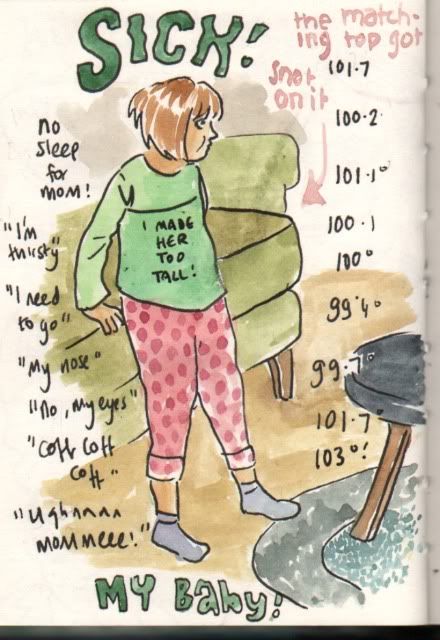 SICK!
the match-
ing top got
snot
on it
no
sleep
for
mom!
"I'm
thirsty"
"I need
to go"
"My nose"
"no, my eyes"
"Coff Coff
Coff"
"Ughnnnn
mommeee!"
I MADE
HER
TOO
TALL!
101.7
100.2
101.1°
100.1
100°
99.4°
99.7°
101.7°
103°!
MY BaBy!